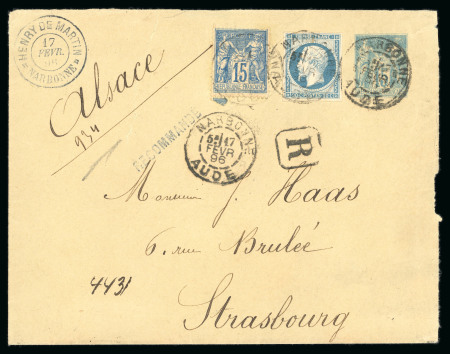 HENRY DE MARTIN
17
FEVR
NARBONNE
Alsace
934
RECOMMANDÉ
15
NARBONNE
5E 17
FEVR
96
AUDE
NARBONNE
AUDE
R
Monsieur J. Haas
6, rue Brulée
4431
Strasbourg